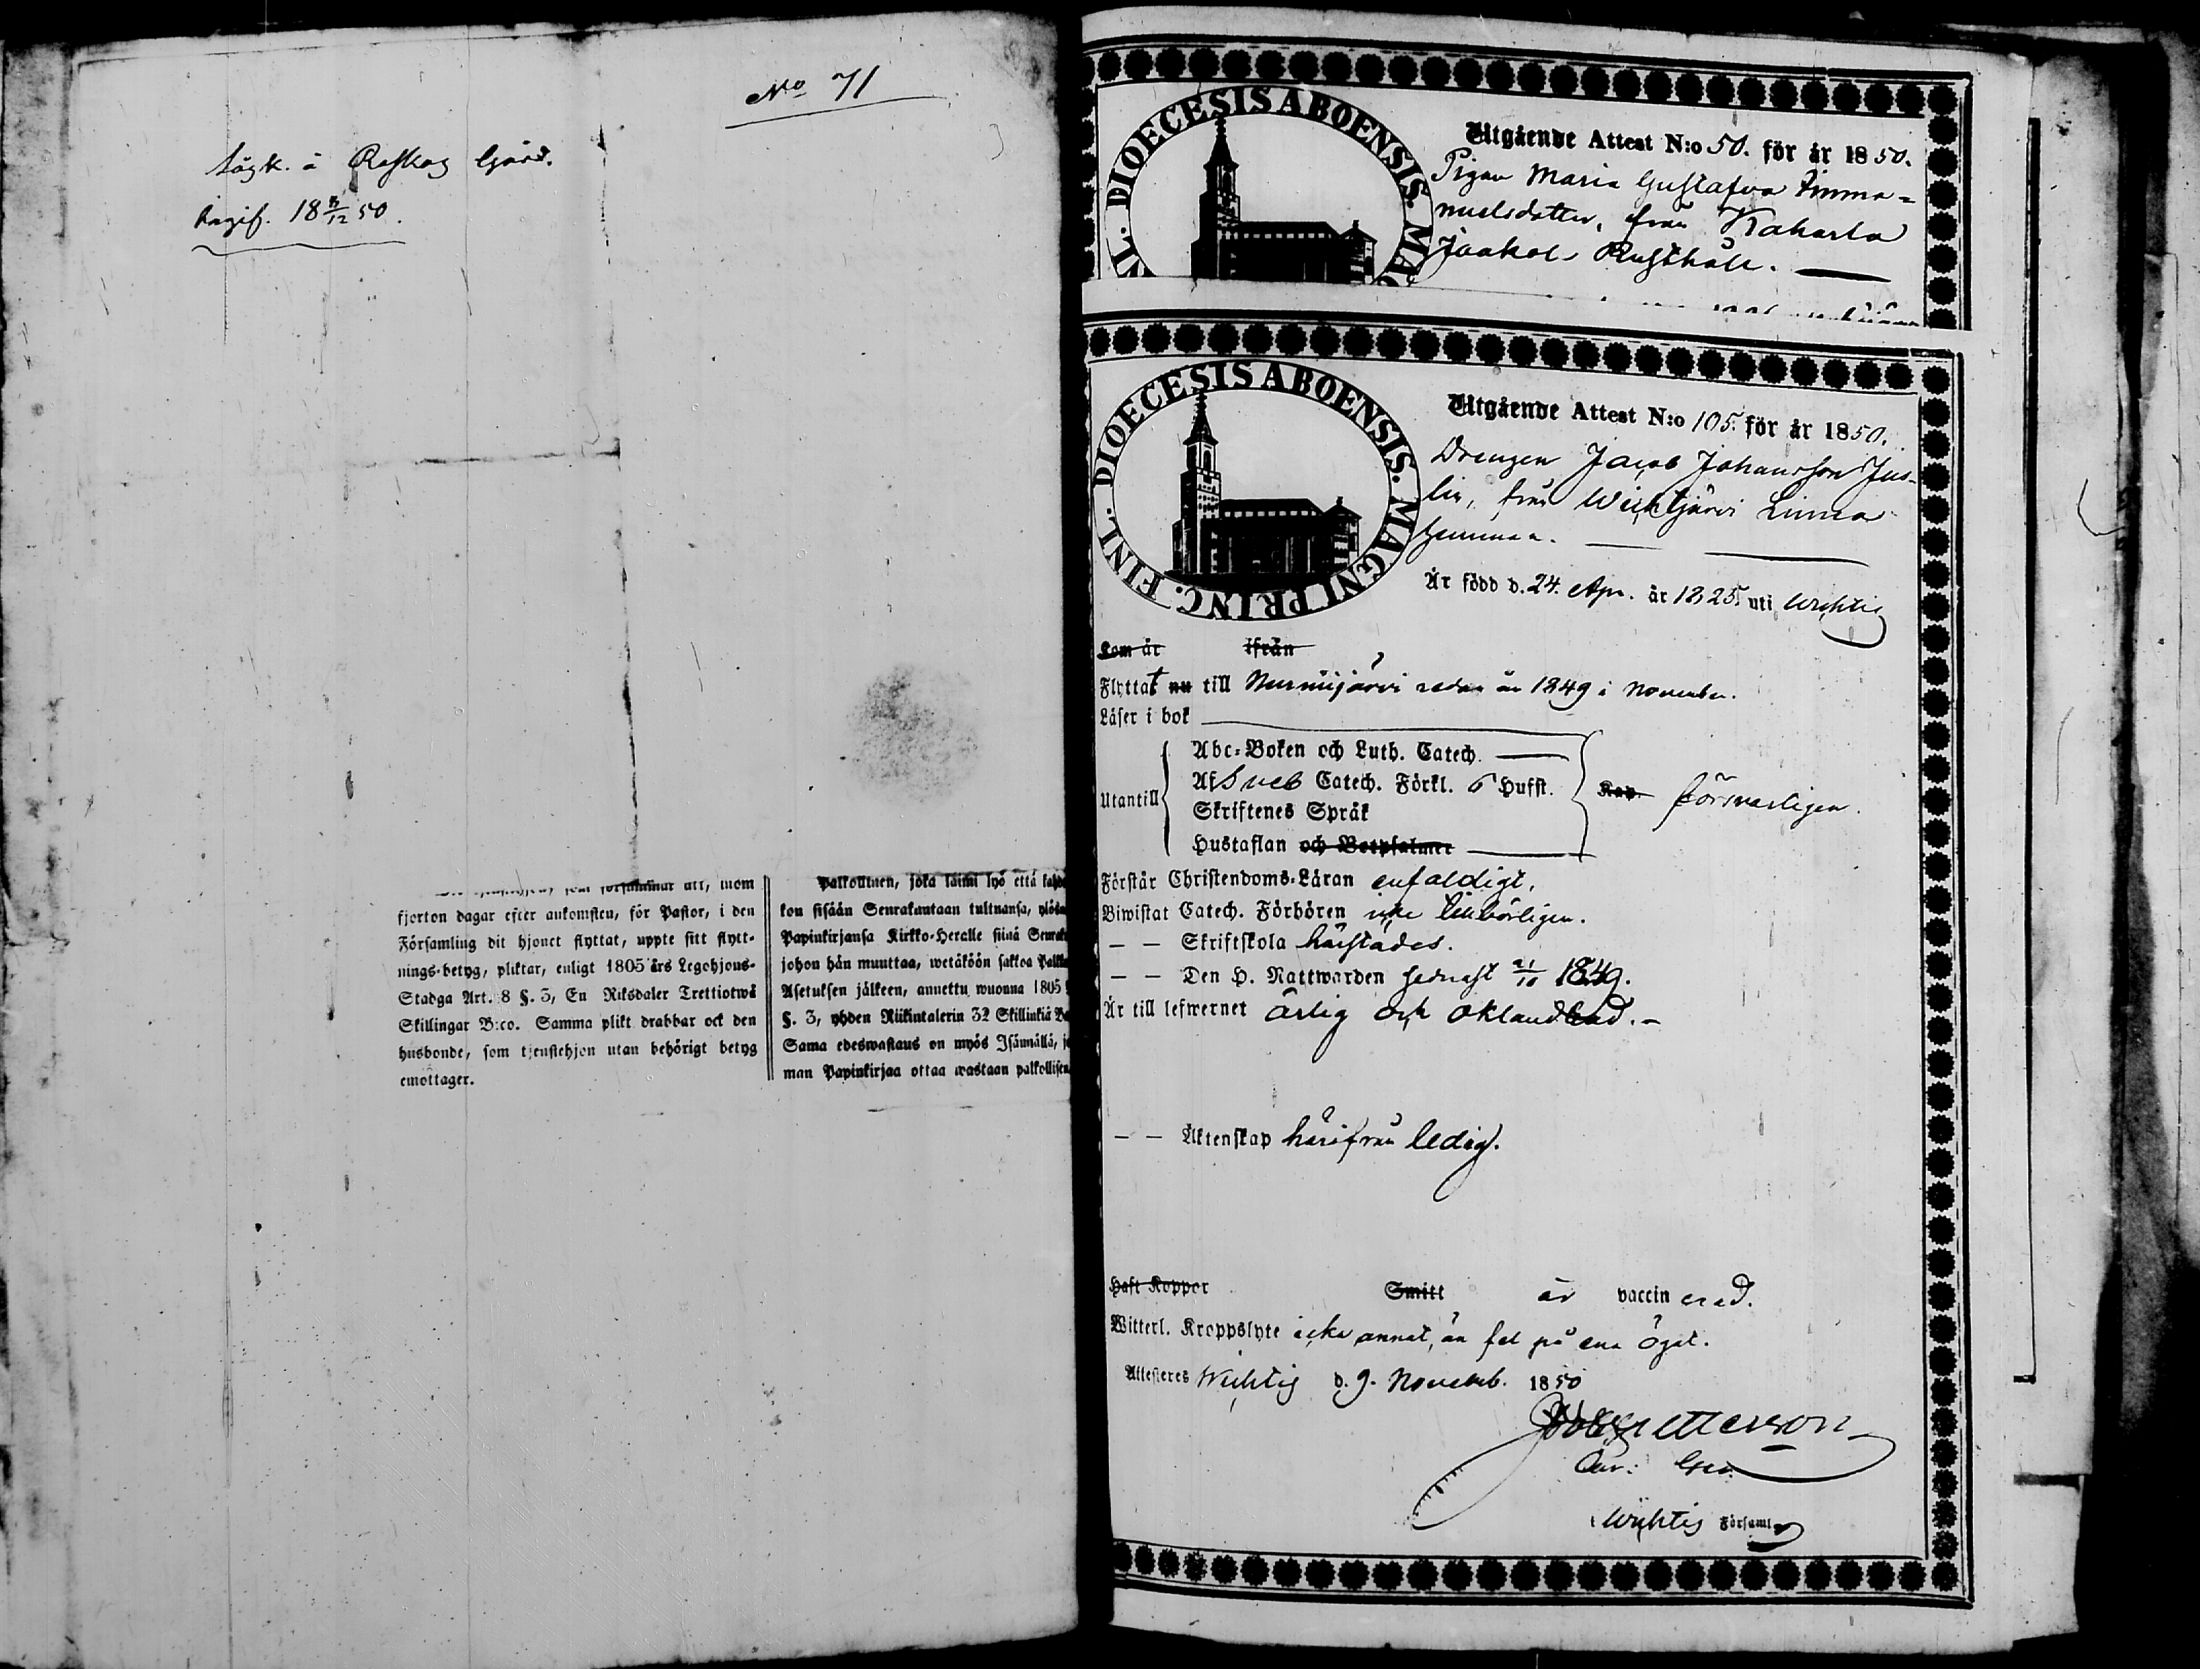 No 71
å Gård.
Ingif. 18 5/12 50.
fjorton dagar efter ankomsten, för Pastor, i den
Församling dit hjonet flyttat, uppte sitt flytt-
nings-betyg, pliktar, enligt 1805 års Legohjons-
Stadga Art. 8 §. 3, En Riksdaler Trettiotwå
Skillingar B:co. Samma plikt drabbar ock den
husbonde, som tjenstehjon utan behörigt betyg
emottager.
palkollinen, joka laimi lyö että
kon sisään Seurakuntaan tultuansa,
Papinkirjansa Kirkko-Heralle siinä
johon hän muuttaa, wetäköön sakkoa
Asetuksen jälkeen, annettu wuonna 1805
§. 3, yhden Riikintalerin 32 Skillinkiä
Sama edeswastaus on myös Isännällä,
man Papinkirjaa ottaa wastaan
DIOECESIS ABOENSIS. MAG
Utgående Attest N:o 50. för år 1850.
Pigan Maria Gustafva Imma=
nuelsdotter, från Kaharla
Jaakola Rusthåll.
DIOECESIS ABOENSIS. MAGNI PRINC. FINL.
Utgående Attest N:o 105. för år 1850.
Drengen Jacob Johansson Jus-
lin, från Wichtjärvi Linna
hemman.
Är född d. 24. Apr. år 1825. uti Wichtis
Kom år ifrån
Flyttat nu till Nurmijärvi redan år 1849 i November.
Läser i bok
Utantill
Abc-Boken och Luth. Catech.
Af Sveb Catech. Förkl. 6 Hufst.
Skriftenes Språk
Hustaflan och Botpsalmer
Kap. försvarligen.
Förstår Christendoms-Läran enfaldigt.
Biwistat Catech. Förhören icke behörligen.
— — Skriftskola härstädes.
— — Den H. Nattwarden senast 21/10 1849.
Är till lefwernet ärlig och oklandrad.
— — Äktenskap härifrån ledig.
Haft Koppor Smitt är vaccinerad.
Witterl. Kroppslyte icke annat, än fel på ena ögat.
Attesteres Wichtis d. 9. Novemb. 1850
Wichtis Församl.